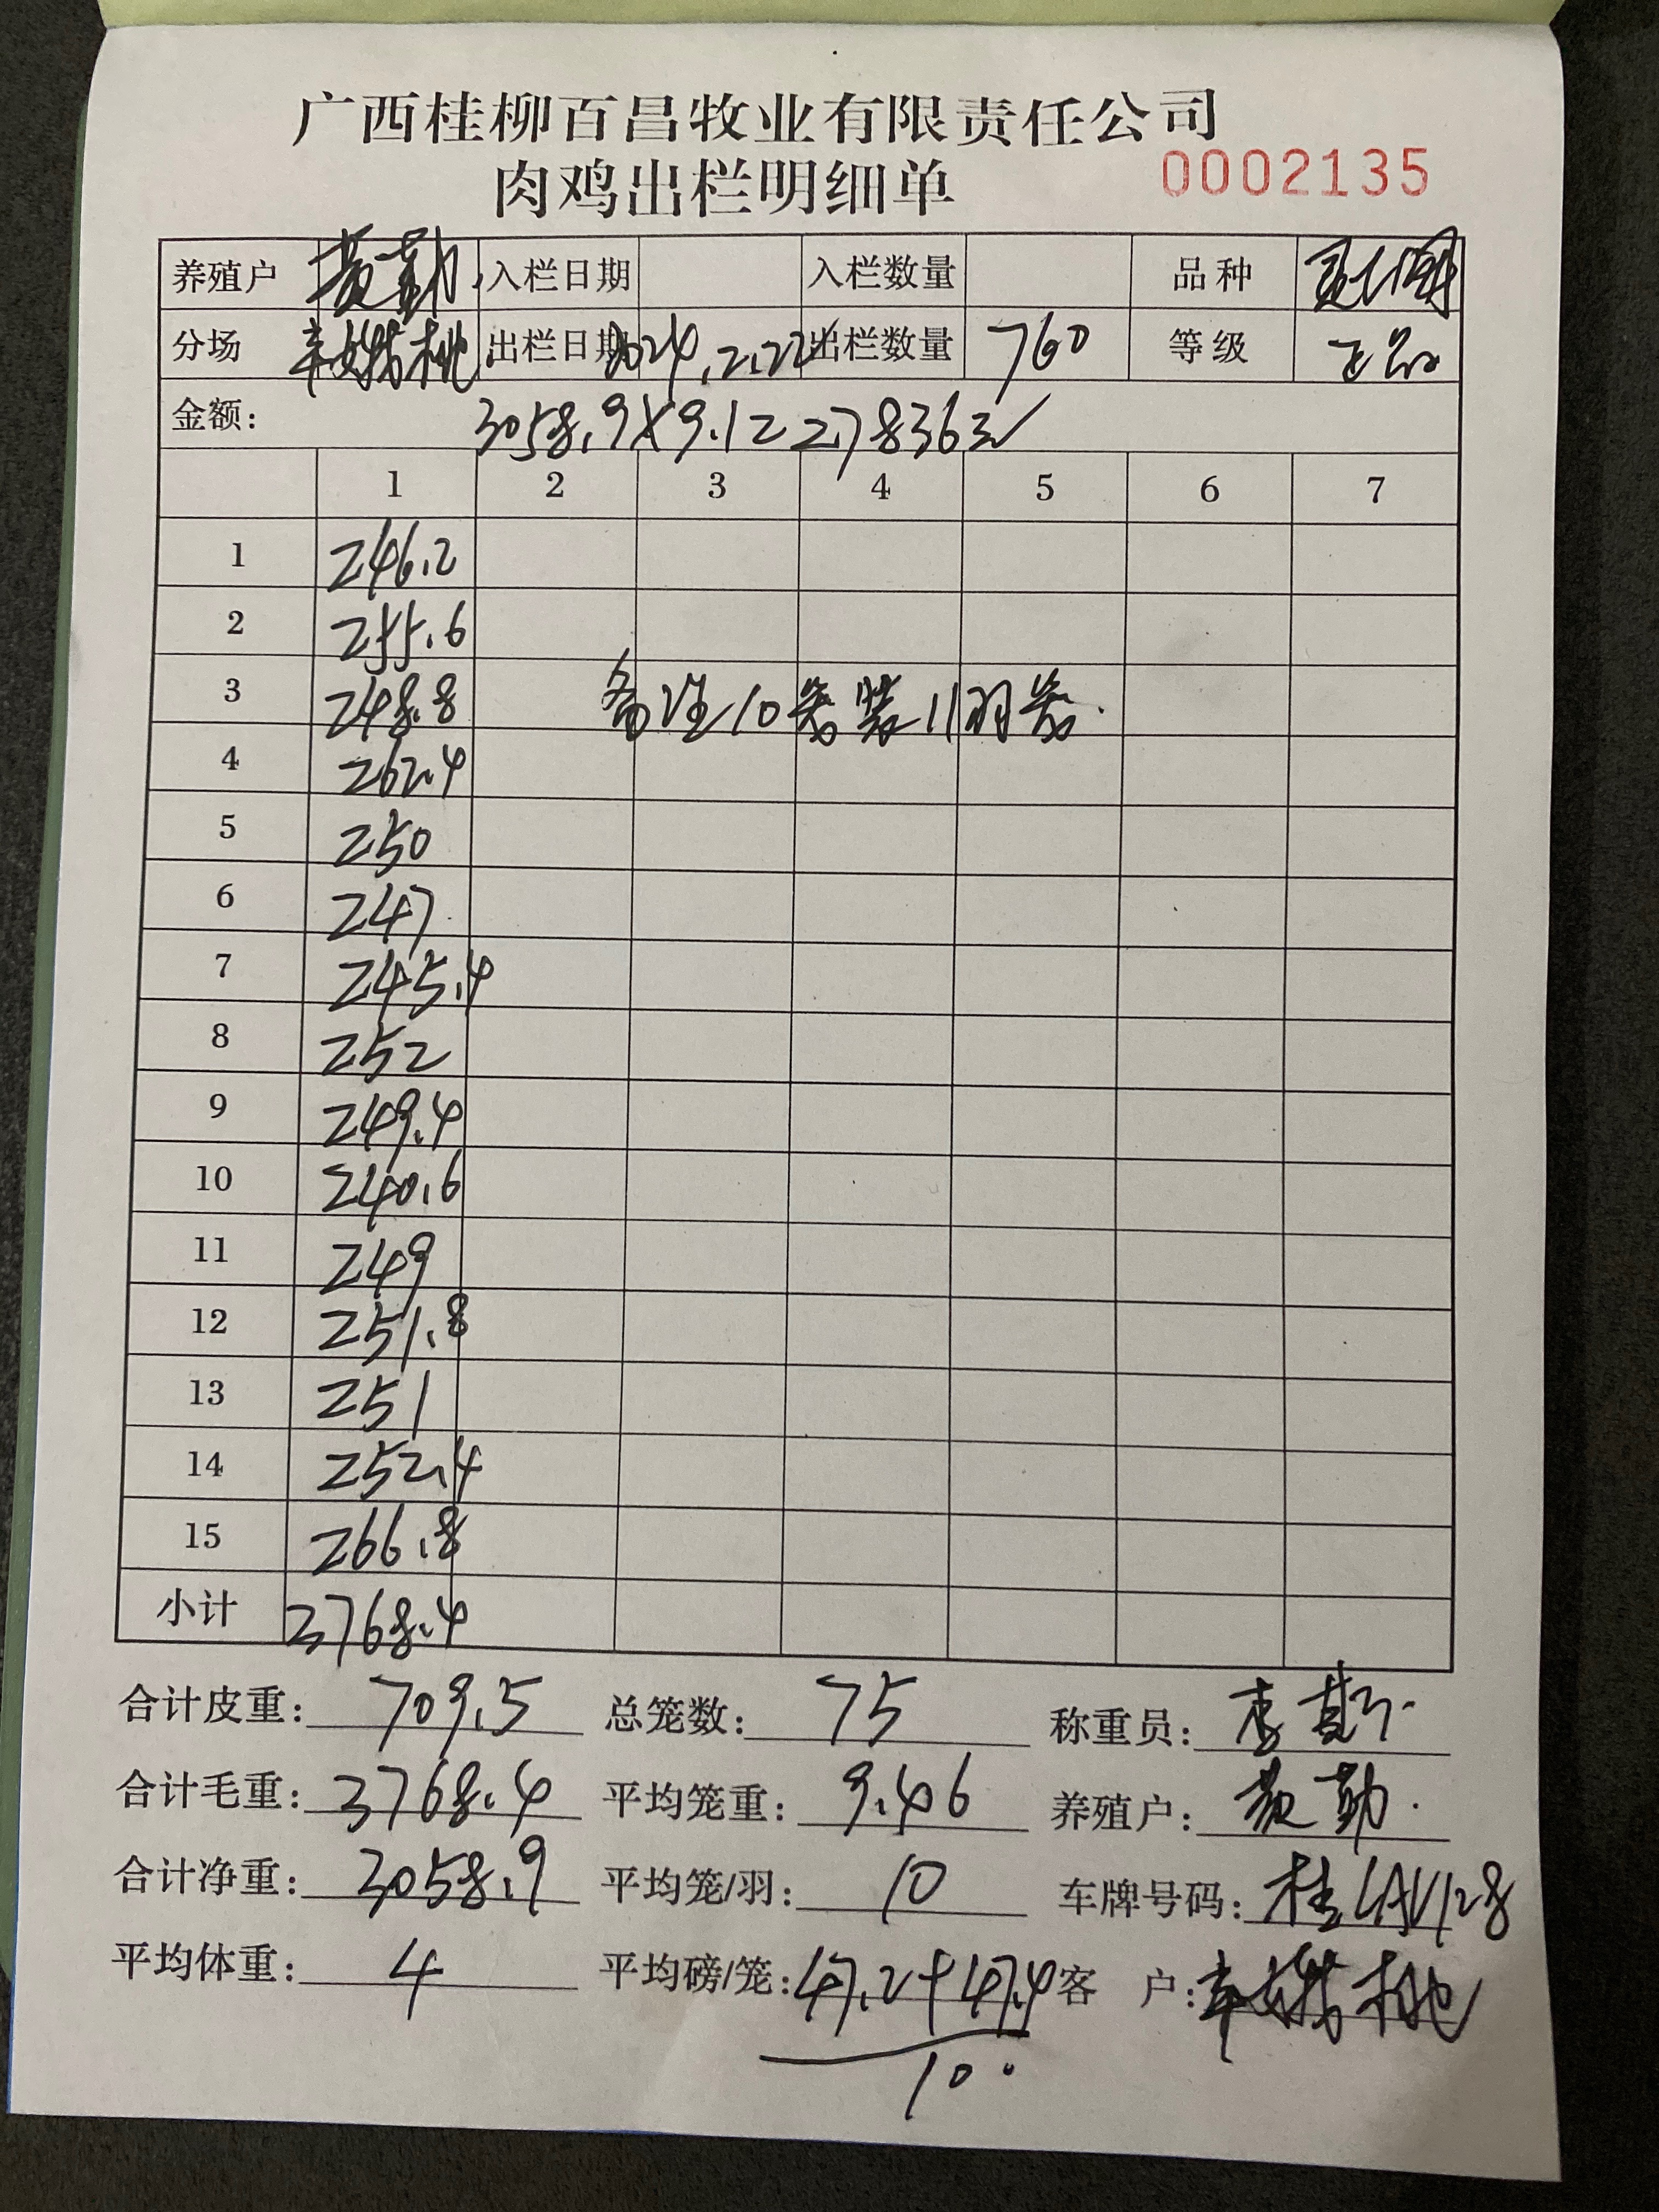 广西桂柳百昌牧业有限责任公司
肉鸡出栏明细单 0002135
养殖户 黄勤 入栏日期 入栏数量 品种
分场 出栏日期 2024.2.22 出栏数量 760 等级
金额: 3058.9×9.1=27836元
1 2 3 4 5 6 7
1 246.2
2 255.6
3 248.8 备注10笼装11羽笼.
4 262.4
5 250
6 247
7 245.4
8 252
9 249.4
10 240.6
11 249
12 251.8
13 251
14 252.4
15 266.8
小计 3768.4
合计皮重: 709.5 总笼数: 75 称重员: 李
合计毛重: 3768.4 平均笼重: 9.46 养殖户: 黄勤.
合计净重: 3058.9 平均笼/羽: 10 车牌号码: 桂LAV128
平均体重: 4 平均磅/笼: 47.2+47.4 客 户:
10